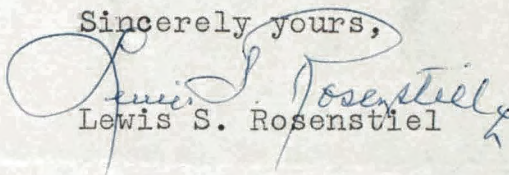 Sincerely yours,
Lewis S. Rosenstiel
Lewis S. Rosenstiel